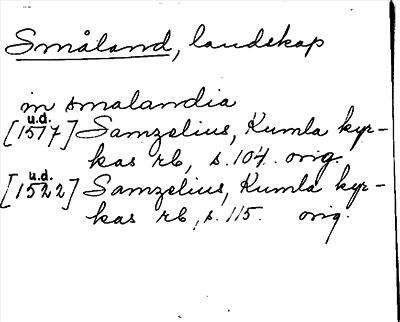 Småland, landskap
in smalandia
u.d.
[1517] Samzelius, Kumla kyr-
kas rb, s.104. orig.
u.d.
[1522] Samzelius, Kumla kyr-
kas rb, s.115. orig.